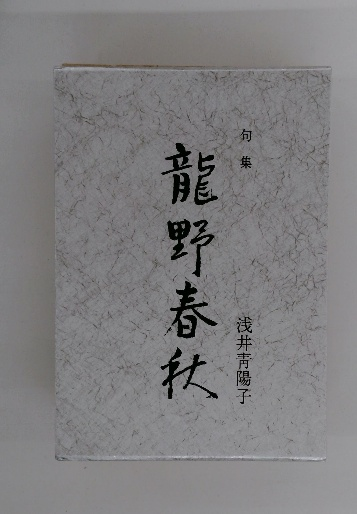 句集
龍野春秋
浅井青陽子